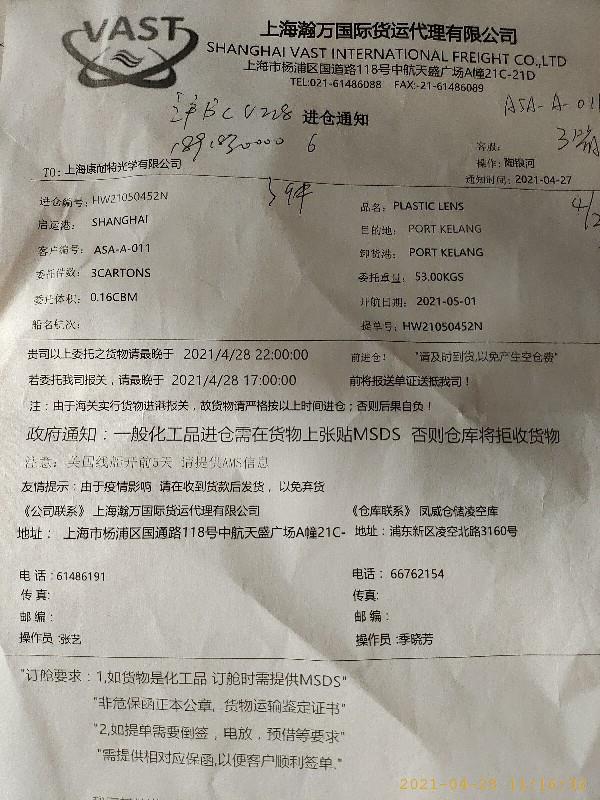 VAST
上海瀚万国际货运代理有限公司
SHANGHAI VAST INTERNATIONAL FREIGHT CO.,LTD
上海市杨浦区国道路118号中航天盛广场A幢21C-21D
TEL:021-61486088 FAX:-21-61486089
进仓通知
ASA-A-011
6
客服:
TO: 上海康耐特光学有限公司
操作: 陶银河
通知时间: 2021-04-27
进仓编号: HW21050452N
品名: PLASTIC LENS
启运港: SHANGHAI
目的地: PORT KELANG
客户编号: ASA-A-011
卸货港: PORT KELANG
委托件数: 3CARTONS
委托重量: 53.00KGS
委托体积: 0.16CBM
开航日期: 2021-05-01
船名航次:
提单号: HW21050452N
贵司以上委托之货物请最晚于 2021/4/28 22:00:00 前进仓! "请及时到货,以免产生空仓费"
若委托我司报关，请最晚于 2021/4/28 17:00:00 前将报送单证送抵我司!
注: 由于海关实行货物进港报关，故货物请严格按以上时间进仓; 否则后果自负!
政府通知: 一般化工品进仓需在货物上张贴MSDS 否则仓库将拒收货物
注意: 美国线船开前5天 请提供AMS信息
友情提示: 由于疫情影响 请在收到货款后发货，以免弃货
《公司联系》上海瀚万国际货运代理有限公司
《仓库联系》 凤威仓储凌空库
地址: 上海市杨浦区国通路118号中航天盛广场A幢21C-
地址: 浦东新区凌空北路3160号
电话: 61486191
电话: 66762154
传真:
传真:
邮编:
邮编:
操作员:张艺
操作员:季晓芳
"订舱要求: 1,如货物是化工品 订舱时需提供MSDS"
"非危保函正本公章，货物运输鉴定证书"
"2,如提单需要倒签，电放，预借等要求"
"需提供相对应保函,以便客户顺利签单."